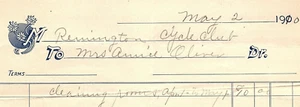 May 2 1900
M Remington Gole Club
To Mrs Annie Oliver Dr.
TERMS
cleaning room & Apr to May 1 $0 00